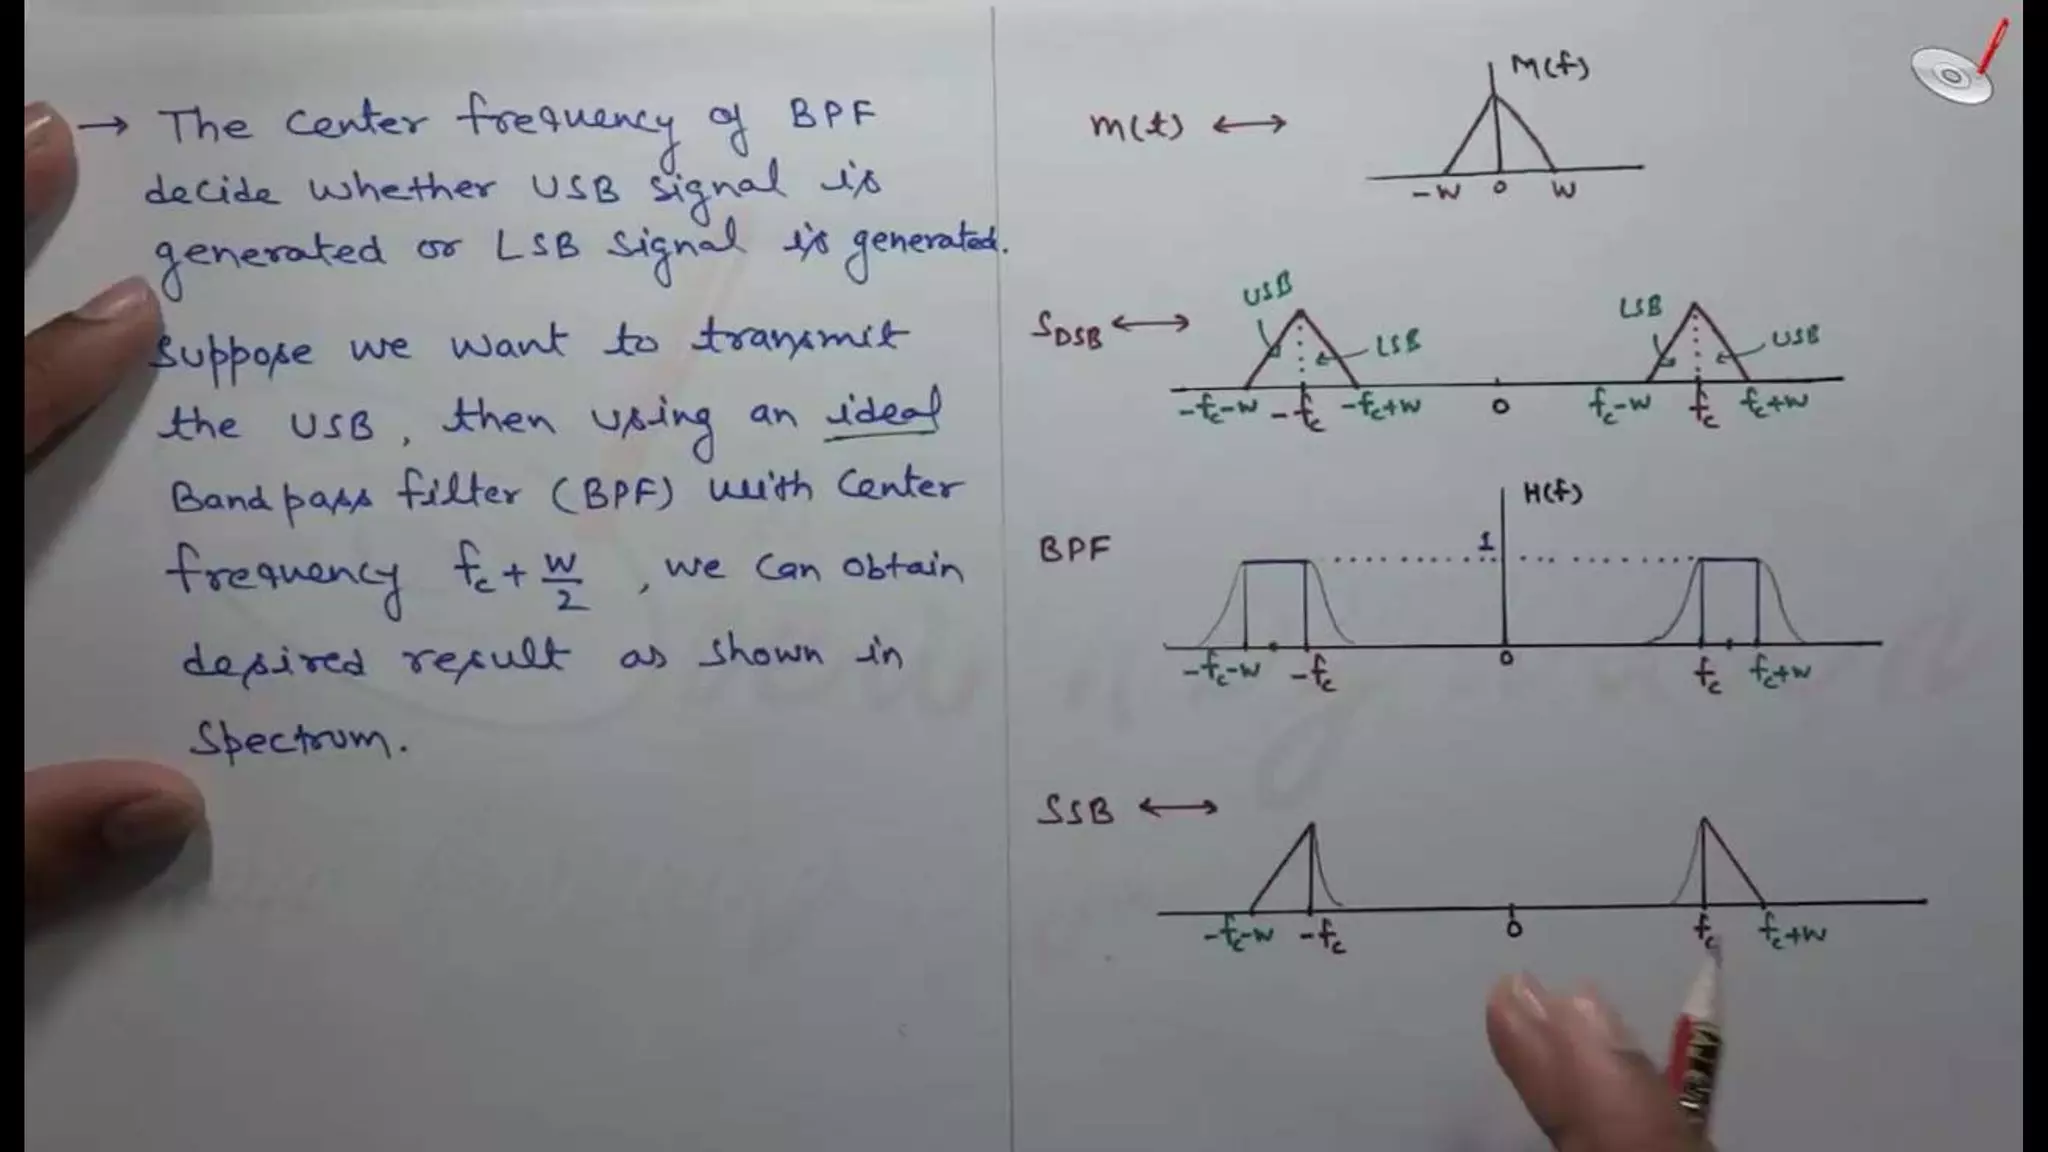 → The Center frequency of BPF
decide whether USB signal is
generated or LSB signal is generated.
Suppose we want to transmit
the USB, then using an ideal
Bandpass filter (BPF) with Center
frequency fc + W/2, we can obtain
desired result as shown in
Spectrum.
M(f)
m(t) ↔
-W 0 W
USB LSB
SDSB ↔ LSB USB
-fc-W -fc -fc+W 0 fc-W fc fc+W
H(f)
BPF 1
-fc-W -fc 0 fc fc+W
SSB ↔
-fc-W -fc 0 fc fc+W